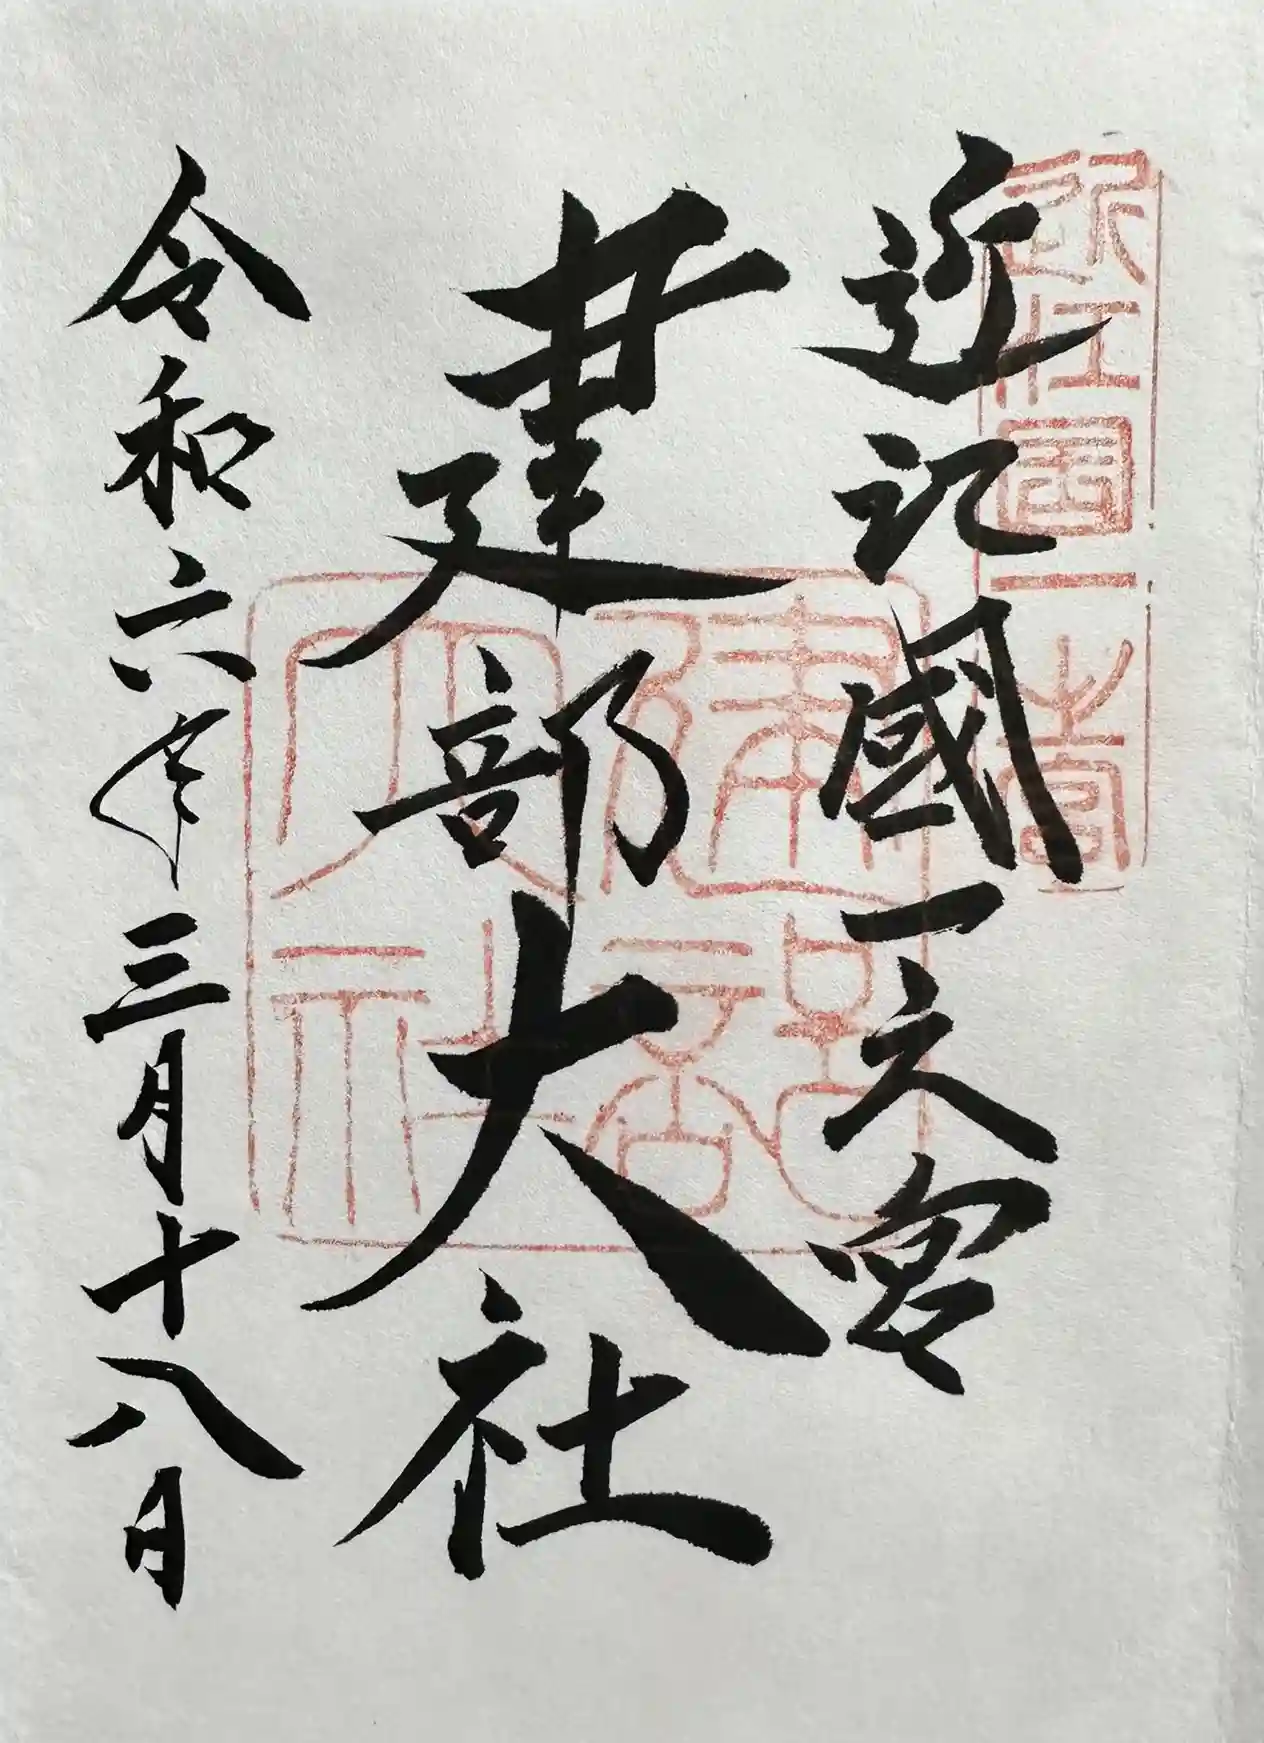 近江國一之宮
近江國一之宮
建部大社
建部大社
令和六年三月十八日